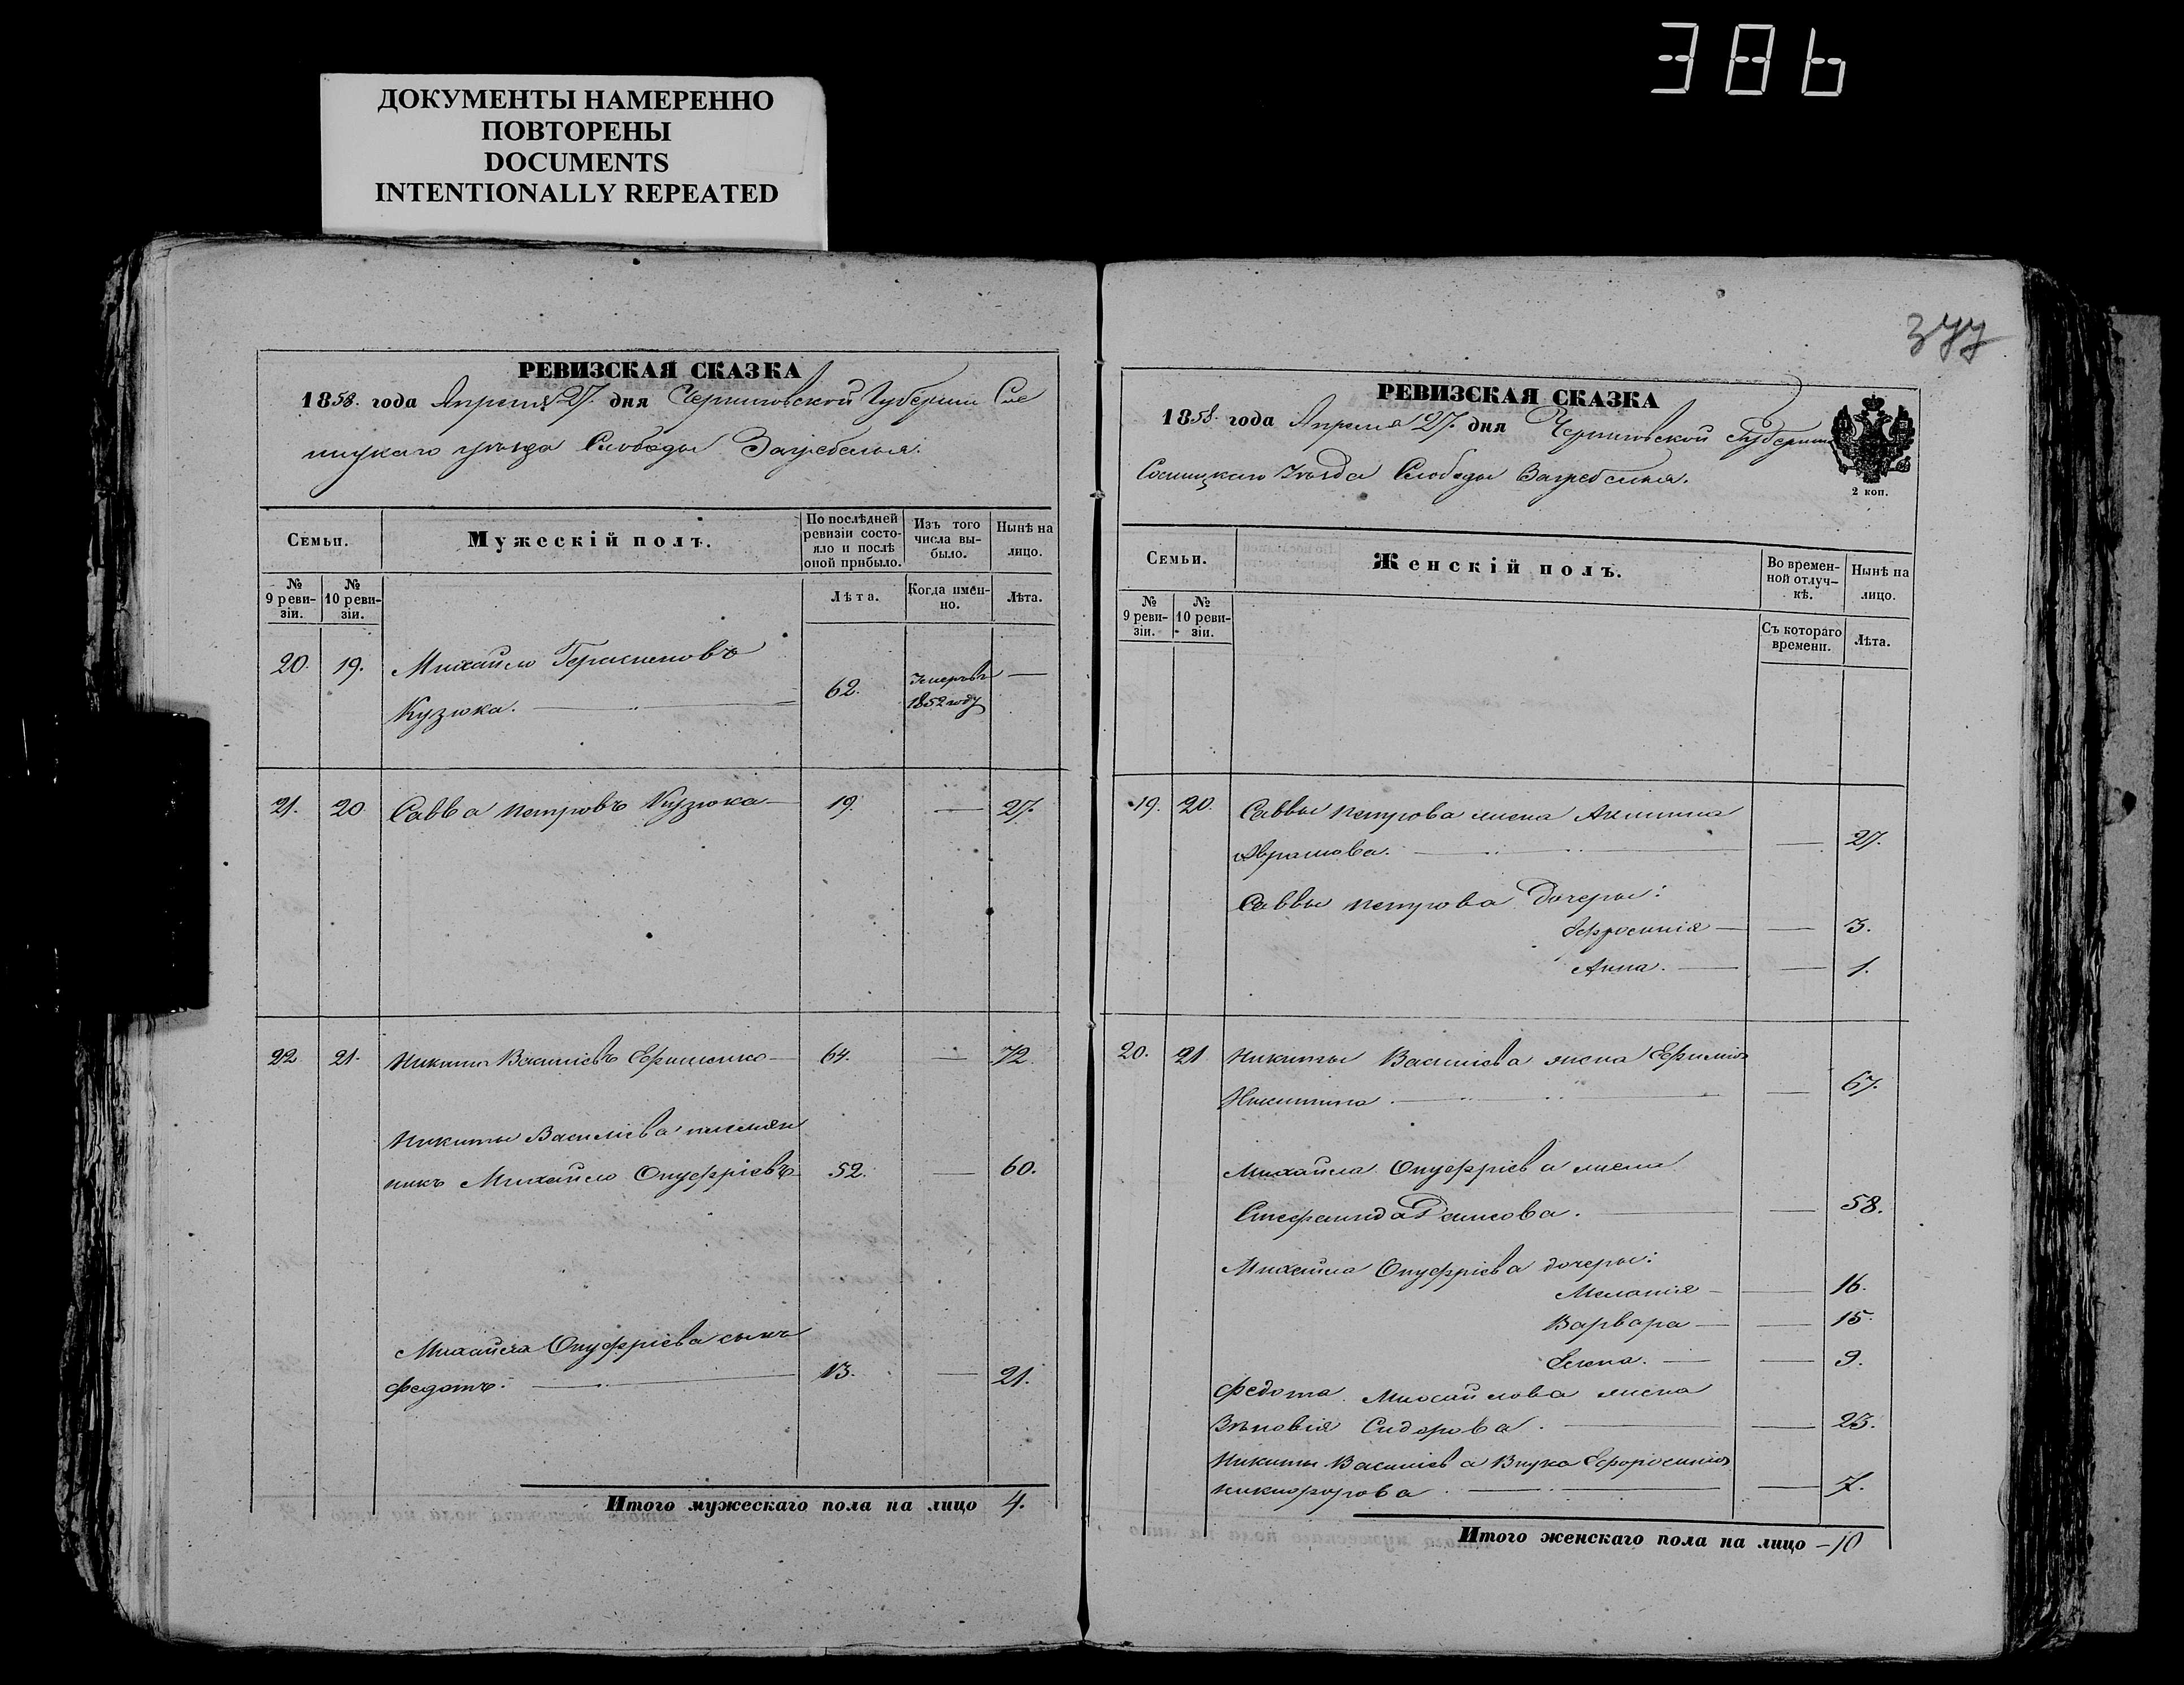 386
ДОКУМЕНТЫ НАМЕРЕННО
ПОВТОРЕНЫ
DOCUMENTS
INTENTIONALLY REPEATED
РЕВИЗСКАЯ СКАЗКА
1858. года Апреля 27. дня Черниговской Губернии Сос
ницкаго уѣзда Слободы Загребелья.
Семьи.
Мужескій полъ.
По послѣдней ревизіи состояло и послѣ оной прибыло.
Изъ того числа выбыло.
Нынѣ на лицо.
№ 9 ревизіи.
№ 10 ревизіи.
Лѣта.
Когда именно.
Лѣта.
20. 19. Михайло Герасимовъ
Кузюка. 62. Умеръ въ 1852 году —
21. 20 Савва Петровъ Кузюка — 19. — 27.
22. 21. Никита Василіевъ Ефименко — 64. — 72.
Никиты Василіева племян
никъ Михайло Онуфріевъ 52. — 60.
Михайла Онуфріева сынъ
Федотъ. — 13. — 21.
Итого мужескаго пола на лицо 4.
377
РЕВИЗСКАЯ СКАЗКА
1858. года Апреля 27. дня Черниговской Губернии
Сосницкаго Уѣзда Слободы Загребелья.
2 коп.
Семьи.
Женскій полъ.
Во временной отлучкѣ.
Нынѣ на лицо.
№ 9 ревизіи.
№ 10 ревизіи.
Съ котораго времени.
Лѣта.
19. 20. Саввы Петрова жена Акилина
Аврамова. — 27.
Саввы Петрова Дочеры:
Ефросинія — — 3.
Анна. — — 1.
20. 21 Никиты Василіева жена Ефимія
Никитина. — 67.
Михайла Онуфріева жена
Стефанида Денисова. — 58.
Михайла Онуфріева дочеры:
Меланія — — 16.
Варвара — — 15.
Елена. — — 9.
Федота Михайлова жена
Сидорова. — 23.
Никиты Василіева Внука Ефросинія
Никифорова. — 7.
Итого женскаго пола на лицо – 10